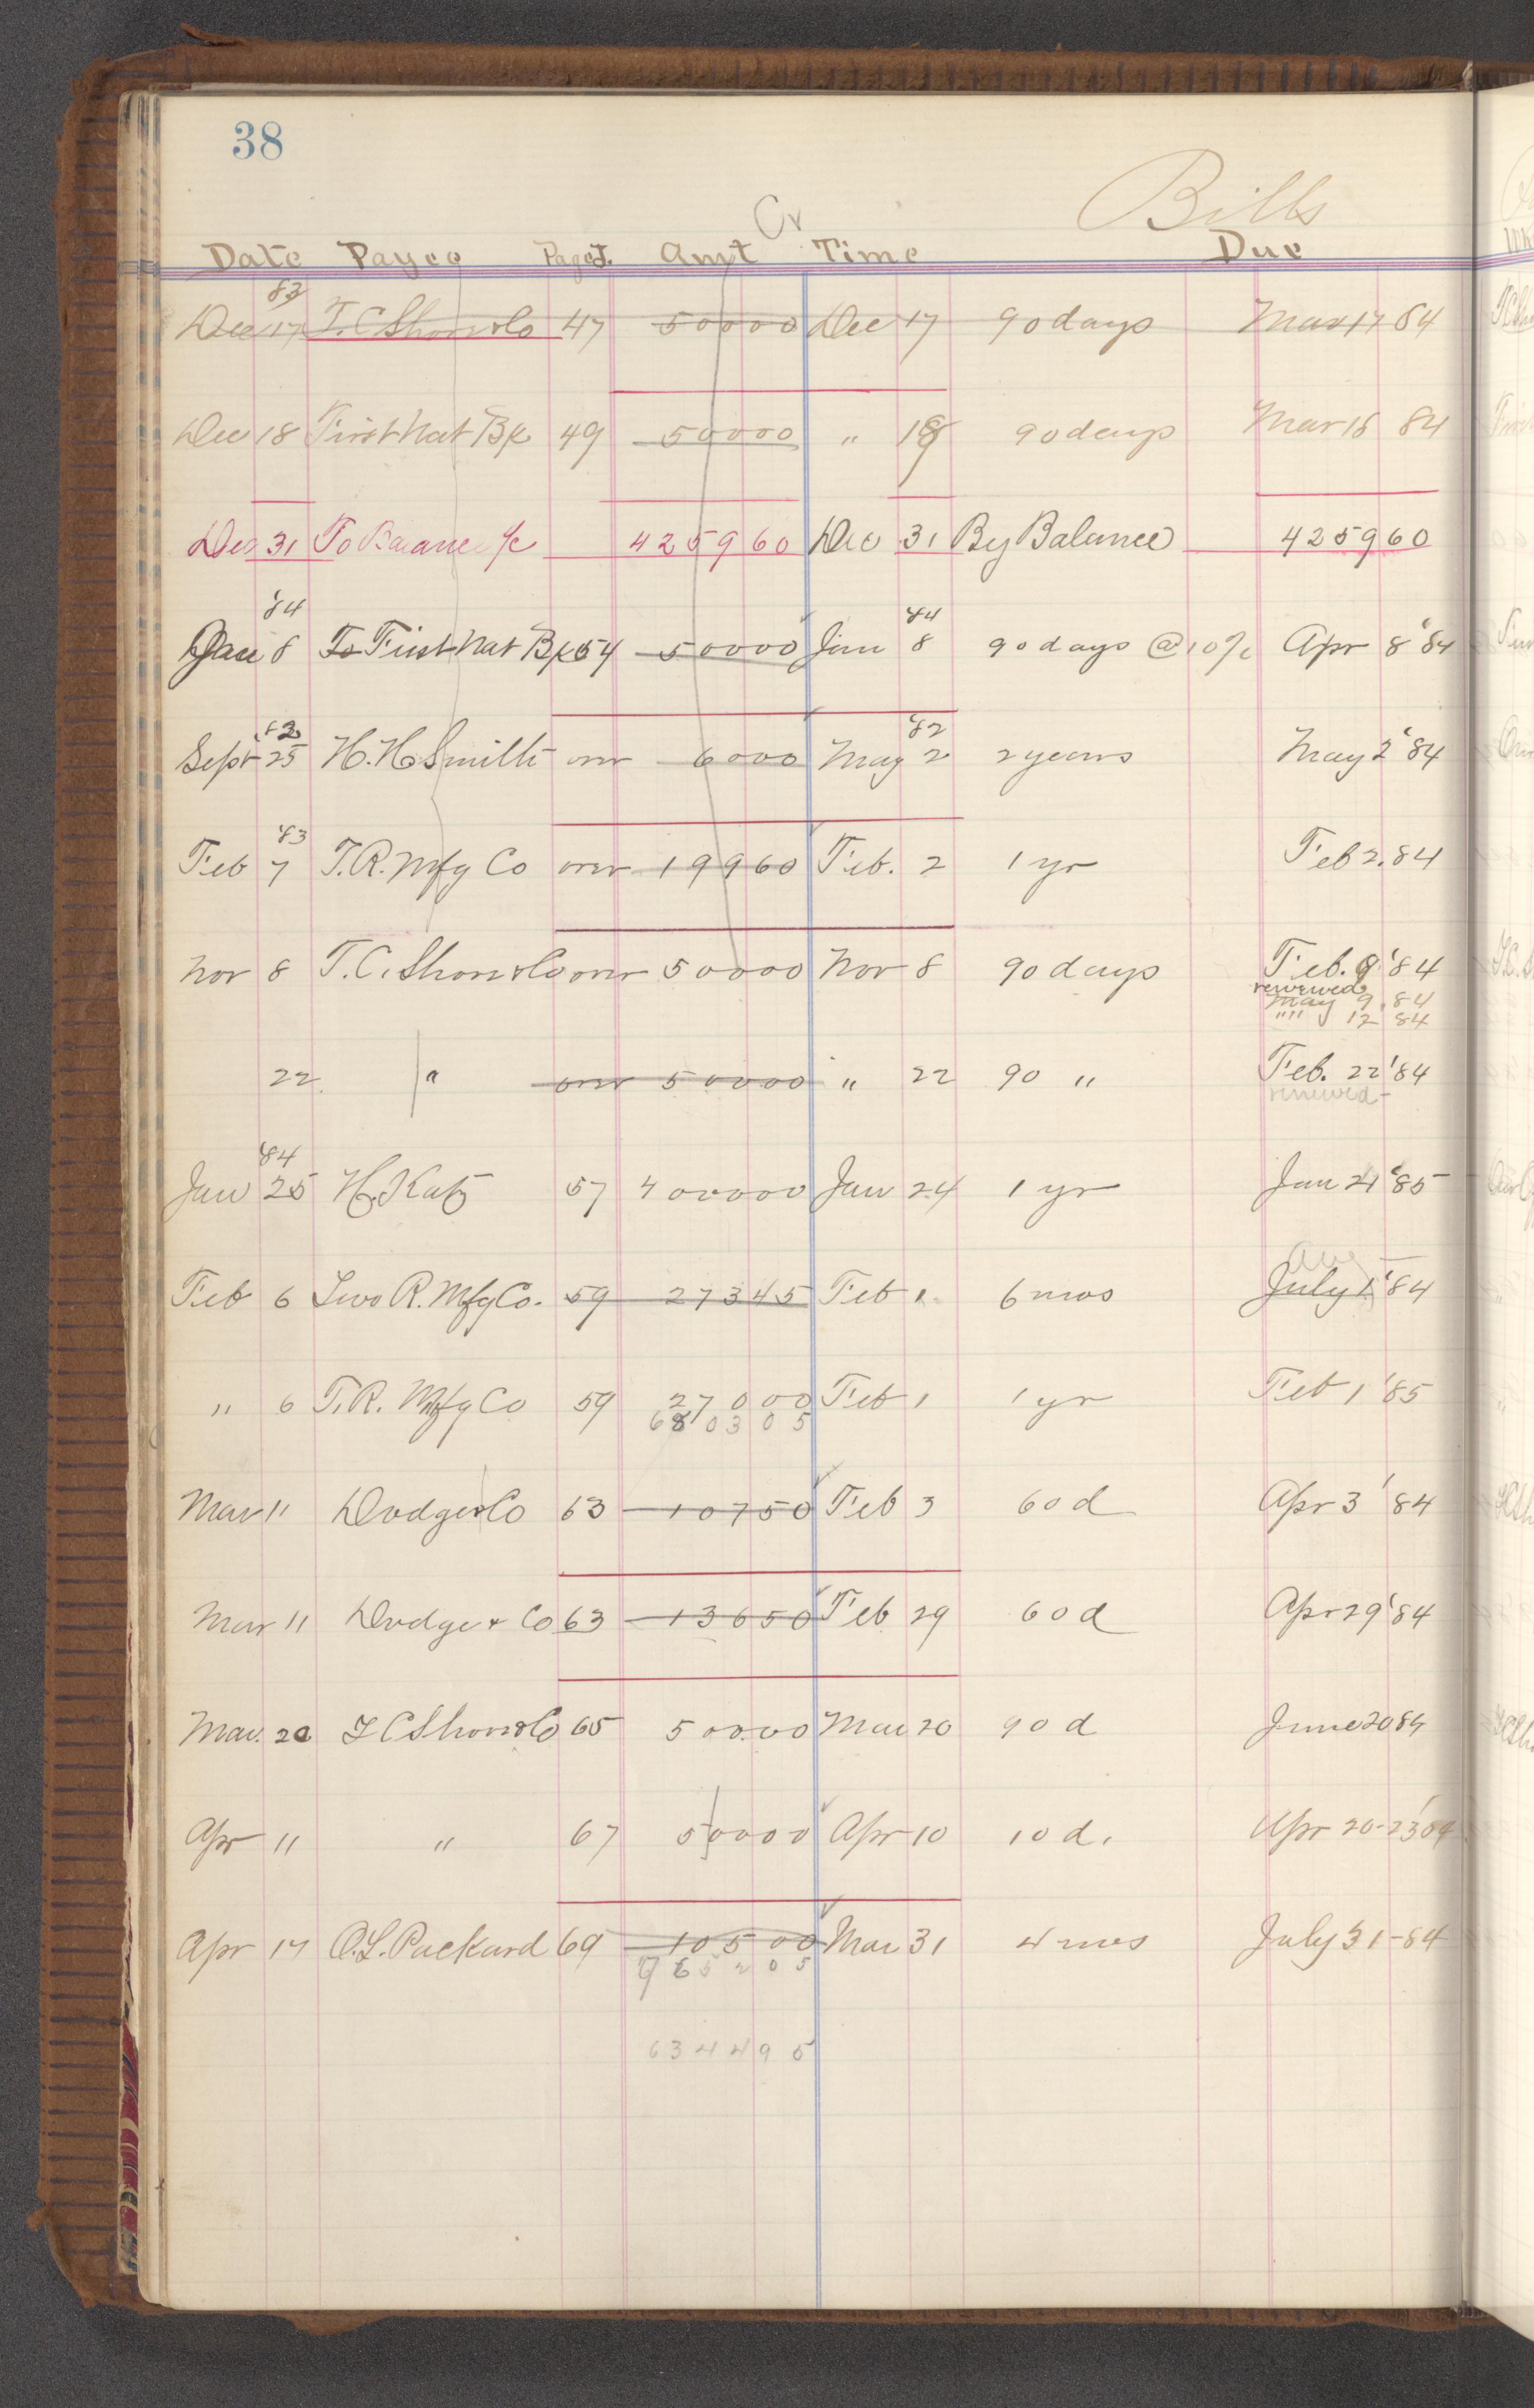 38
Bills
Cr
Date Payee Page J. Amt Time Due
'83
Dec 17 T. C. Shove & Co 47 50000 Dec 17 90 days Mar 17 84
Dec 18 First Nat Bk 49 50000 " 18 90 days Mar 18 84
Dec 31 To Balance 425960 Dec 31 By Balance 425960
'84 '84
Jan 8 To First Nat Bk 54 50000 Jan 8 90 days @ 10% Apr 8 '84
'82 '82
Sept 25 H. H. Smith over 6000 May 2 2 years May 2 '84
'83
Feb 7 T. R. Mfg Co over 19960 Feb. 2 1 yr Feb 2. 84
Nov 8 T. C. Shove & Co over 50000 Nov 8 90 days Feb. 8 '84
renewed
May 9. 84
"" 12 84
22 " over 50000 " 22 90 " Feb. 22 '84
renewed
'84
Jan 25 H. Katz 57 400000 Jan 24 1 yr Jan 24 '85
Aug
Feb 6 Two R. Mfg Co. 59 27345 Feb 1 6 mos July 1 '84
" 6 T. R. Mfg Co 59 27000 Feb 1 1 yr Feb 1 '85
680305
Mar 11 Dodge & Co 63 10750 Feb 3 60 d Apr 3 '84
Mar 11 Dodge & Co 63 13650 Feb 29 60 d Apr 29 '84
Mar. 20 T C Shove & Co 65 50000 Mar 20 90 d June 20 84
Apr 11 " 67 50000 Apr 10 10 d. Apr 20-23 '84
Apr 17 O. L. Packard 69 10500 Mar 31 4 mos July 31-84
765205
634495